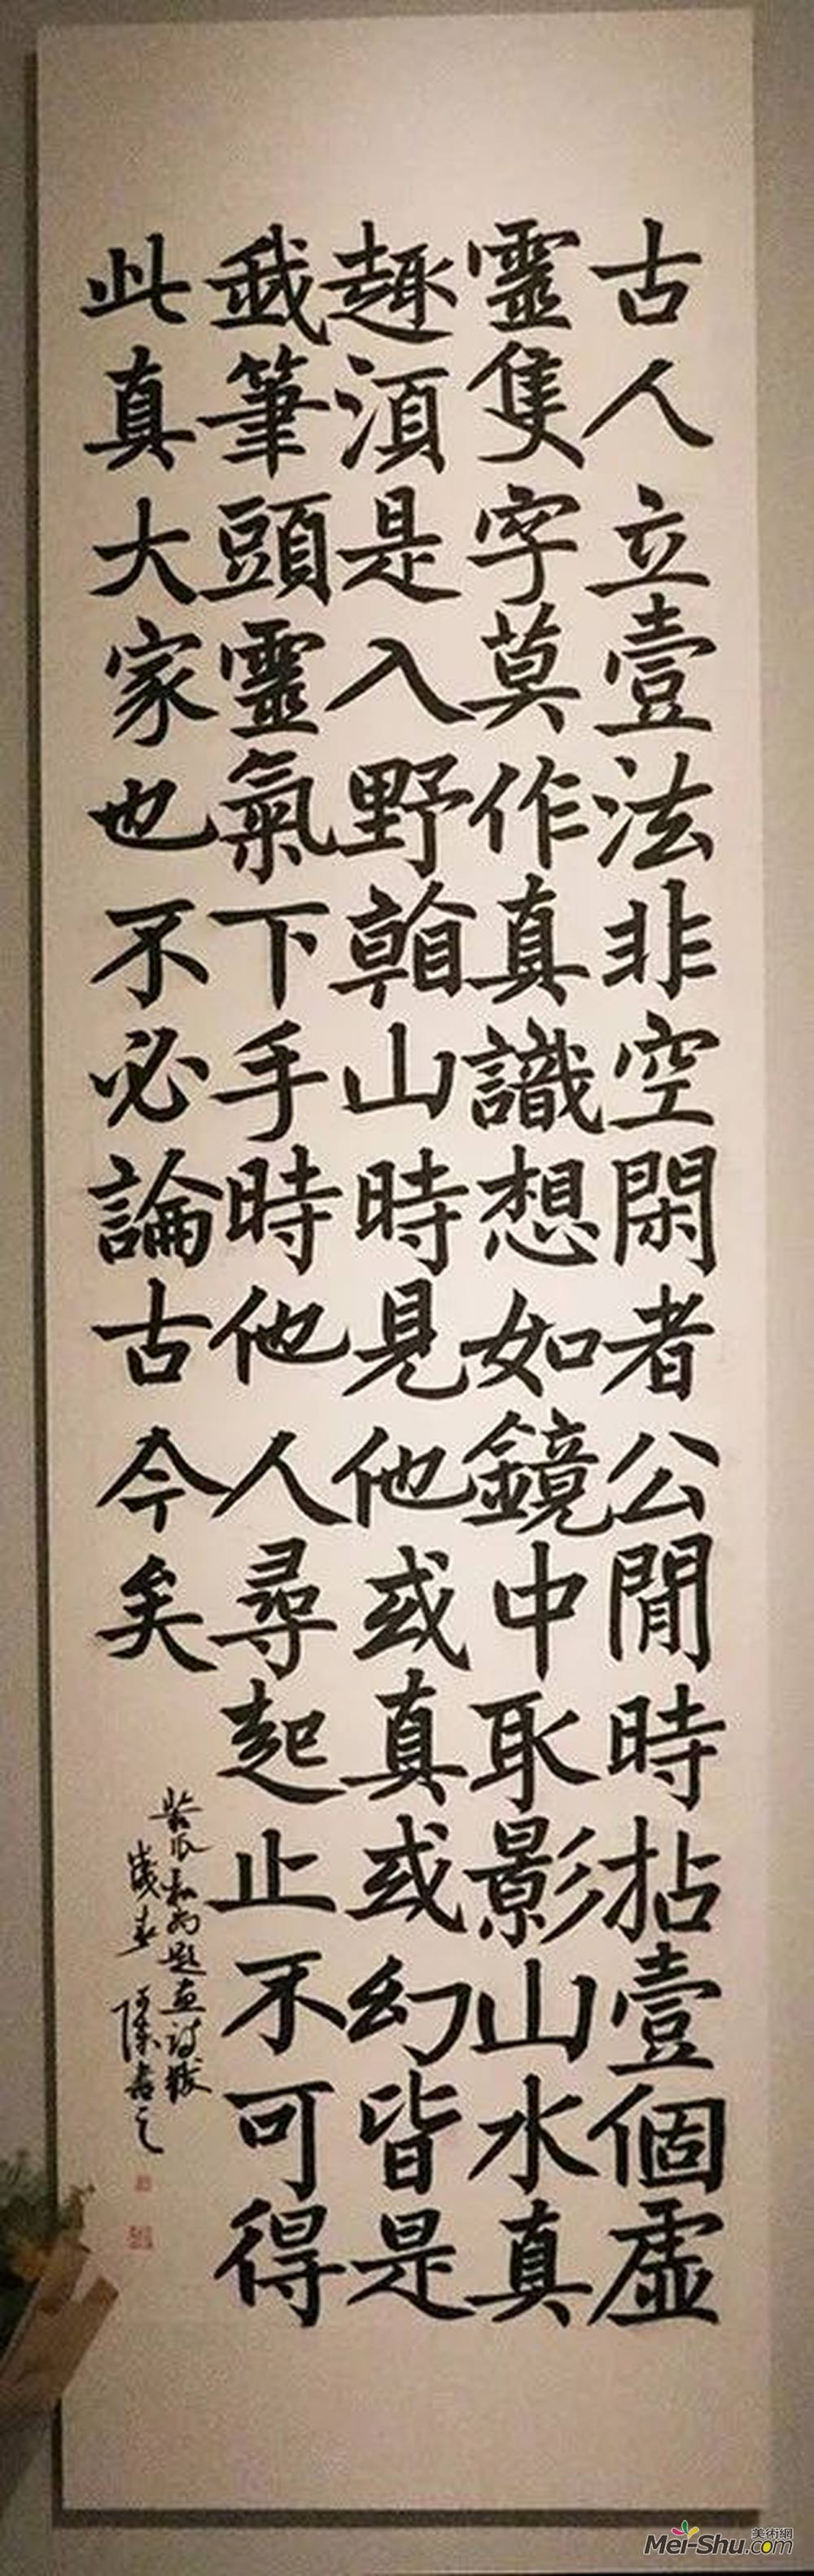 古人立壹法非空閑者公閒時拈壹個虛
靈隻字莫作真識想如鏡中取影山水真
趣須是入野看山時見他或真或幻皆是
我筆頭靈氣下手時他人尋起止不可得
此真大家也不必論古今矣
瓜和尚題畫詩跋
書之
美術網
Mei-Shu.com